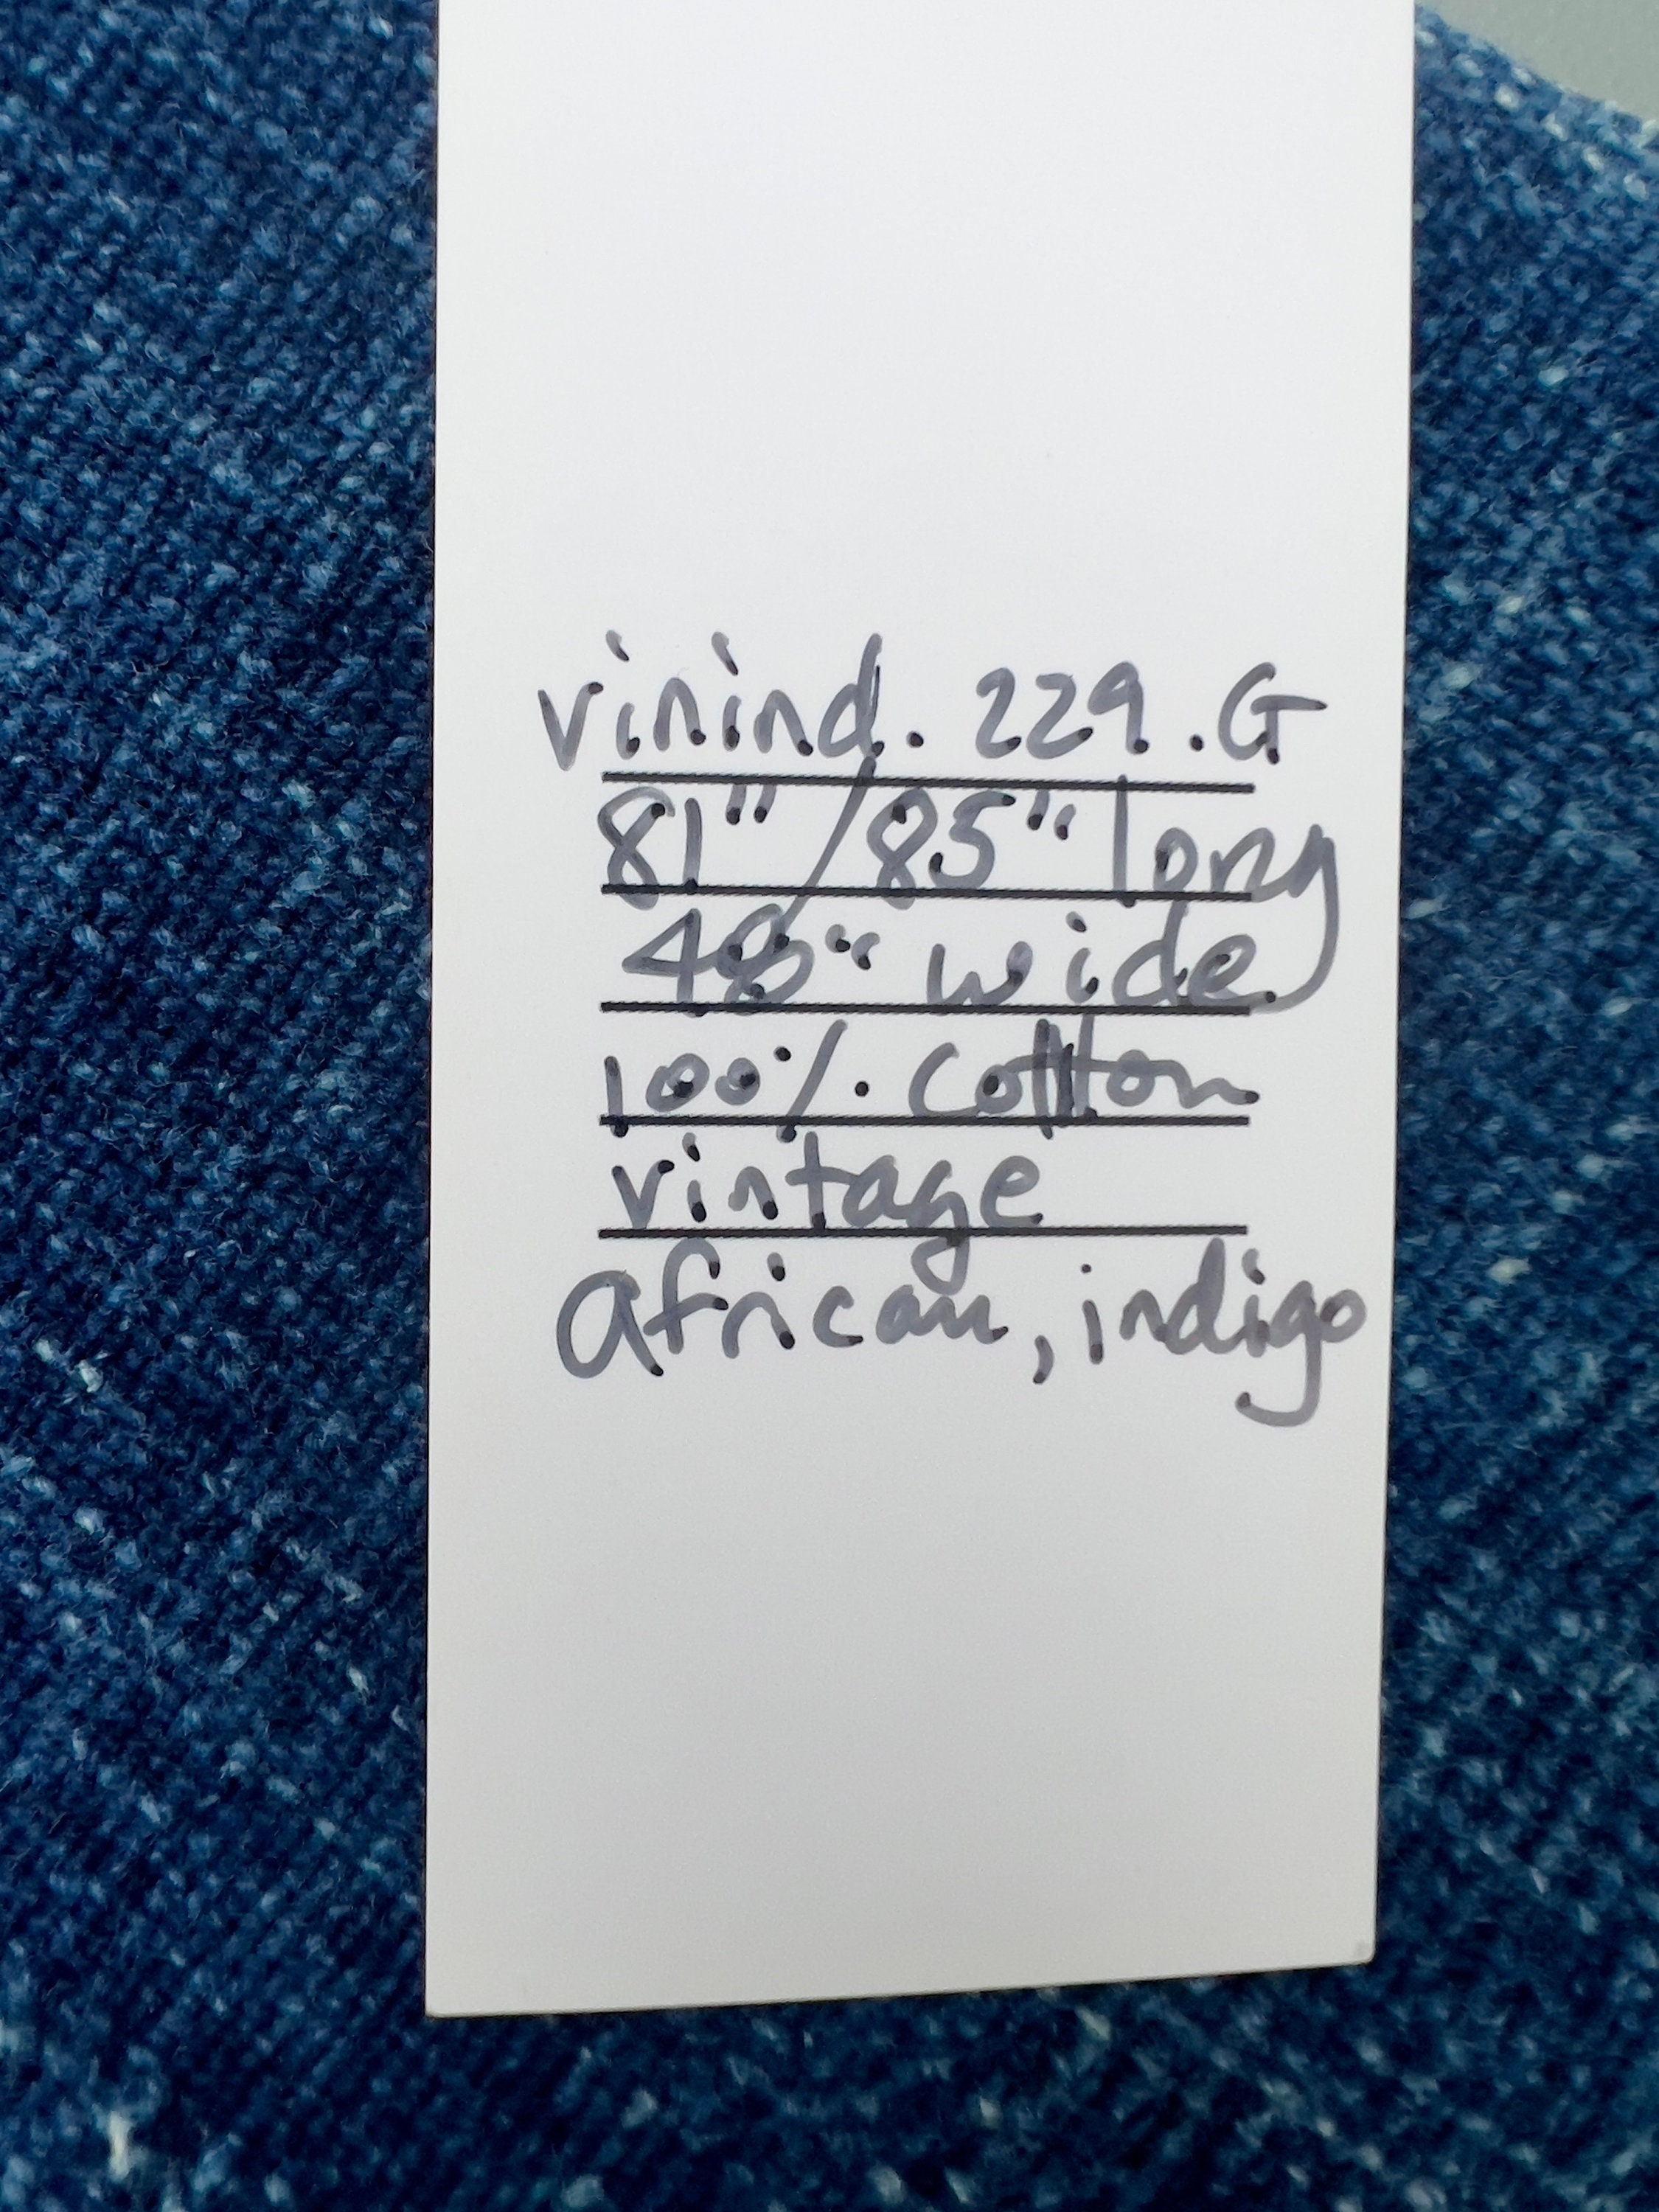 vinind. 229.G
81"/85" long
48" wide
100% cotton
vintage
African, indigo